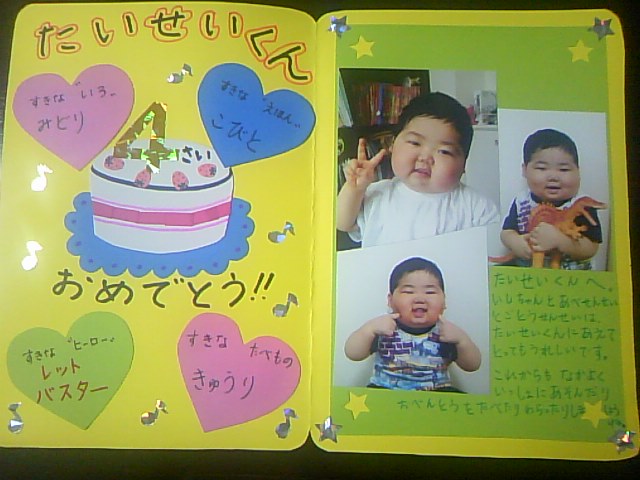 たいせいくん
すきな "いろ"
みどり
すきな "えほん"
こびと
4さい
おめでとう!!
すきな "ヒーロー"
レット
バスター
すきな たべもの
きゅうり
たいせいくんへ。
いしちゃんとあべせんせい
とごとうせんせいは、
たいせいくんにあえて
とってもうれしいです。
これからもなかよく
いっしょにあそんだり
おべんとうをたべたりわらったりしま